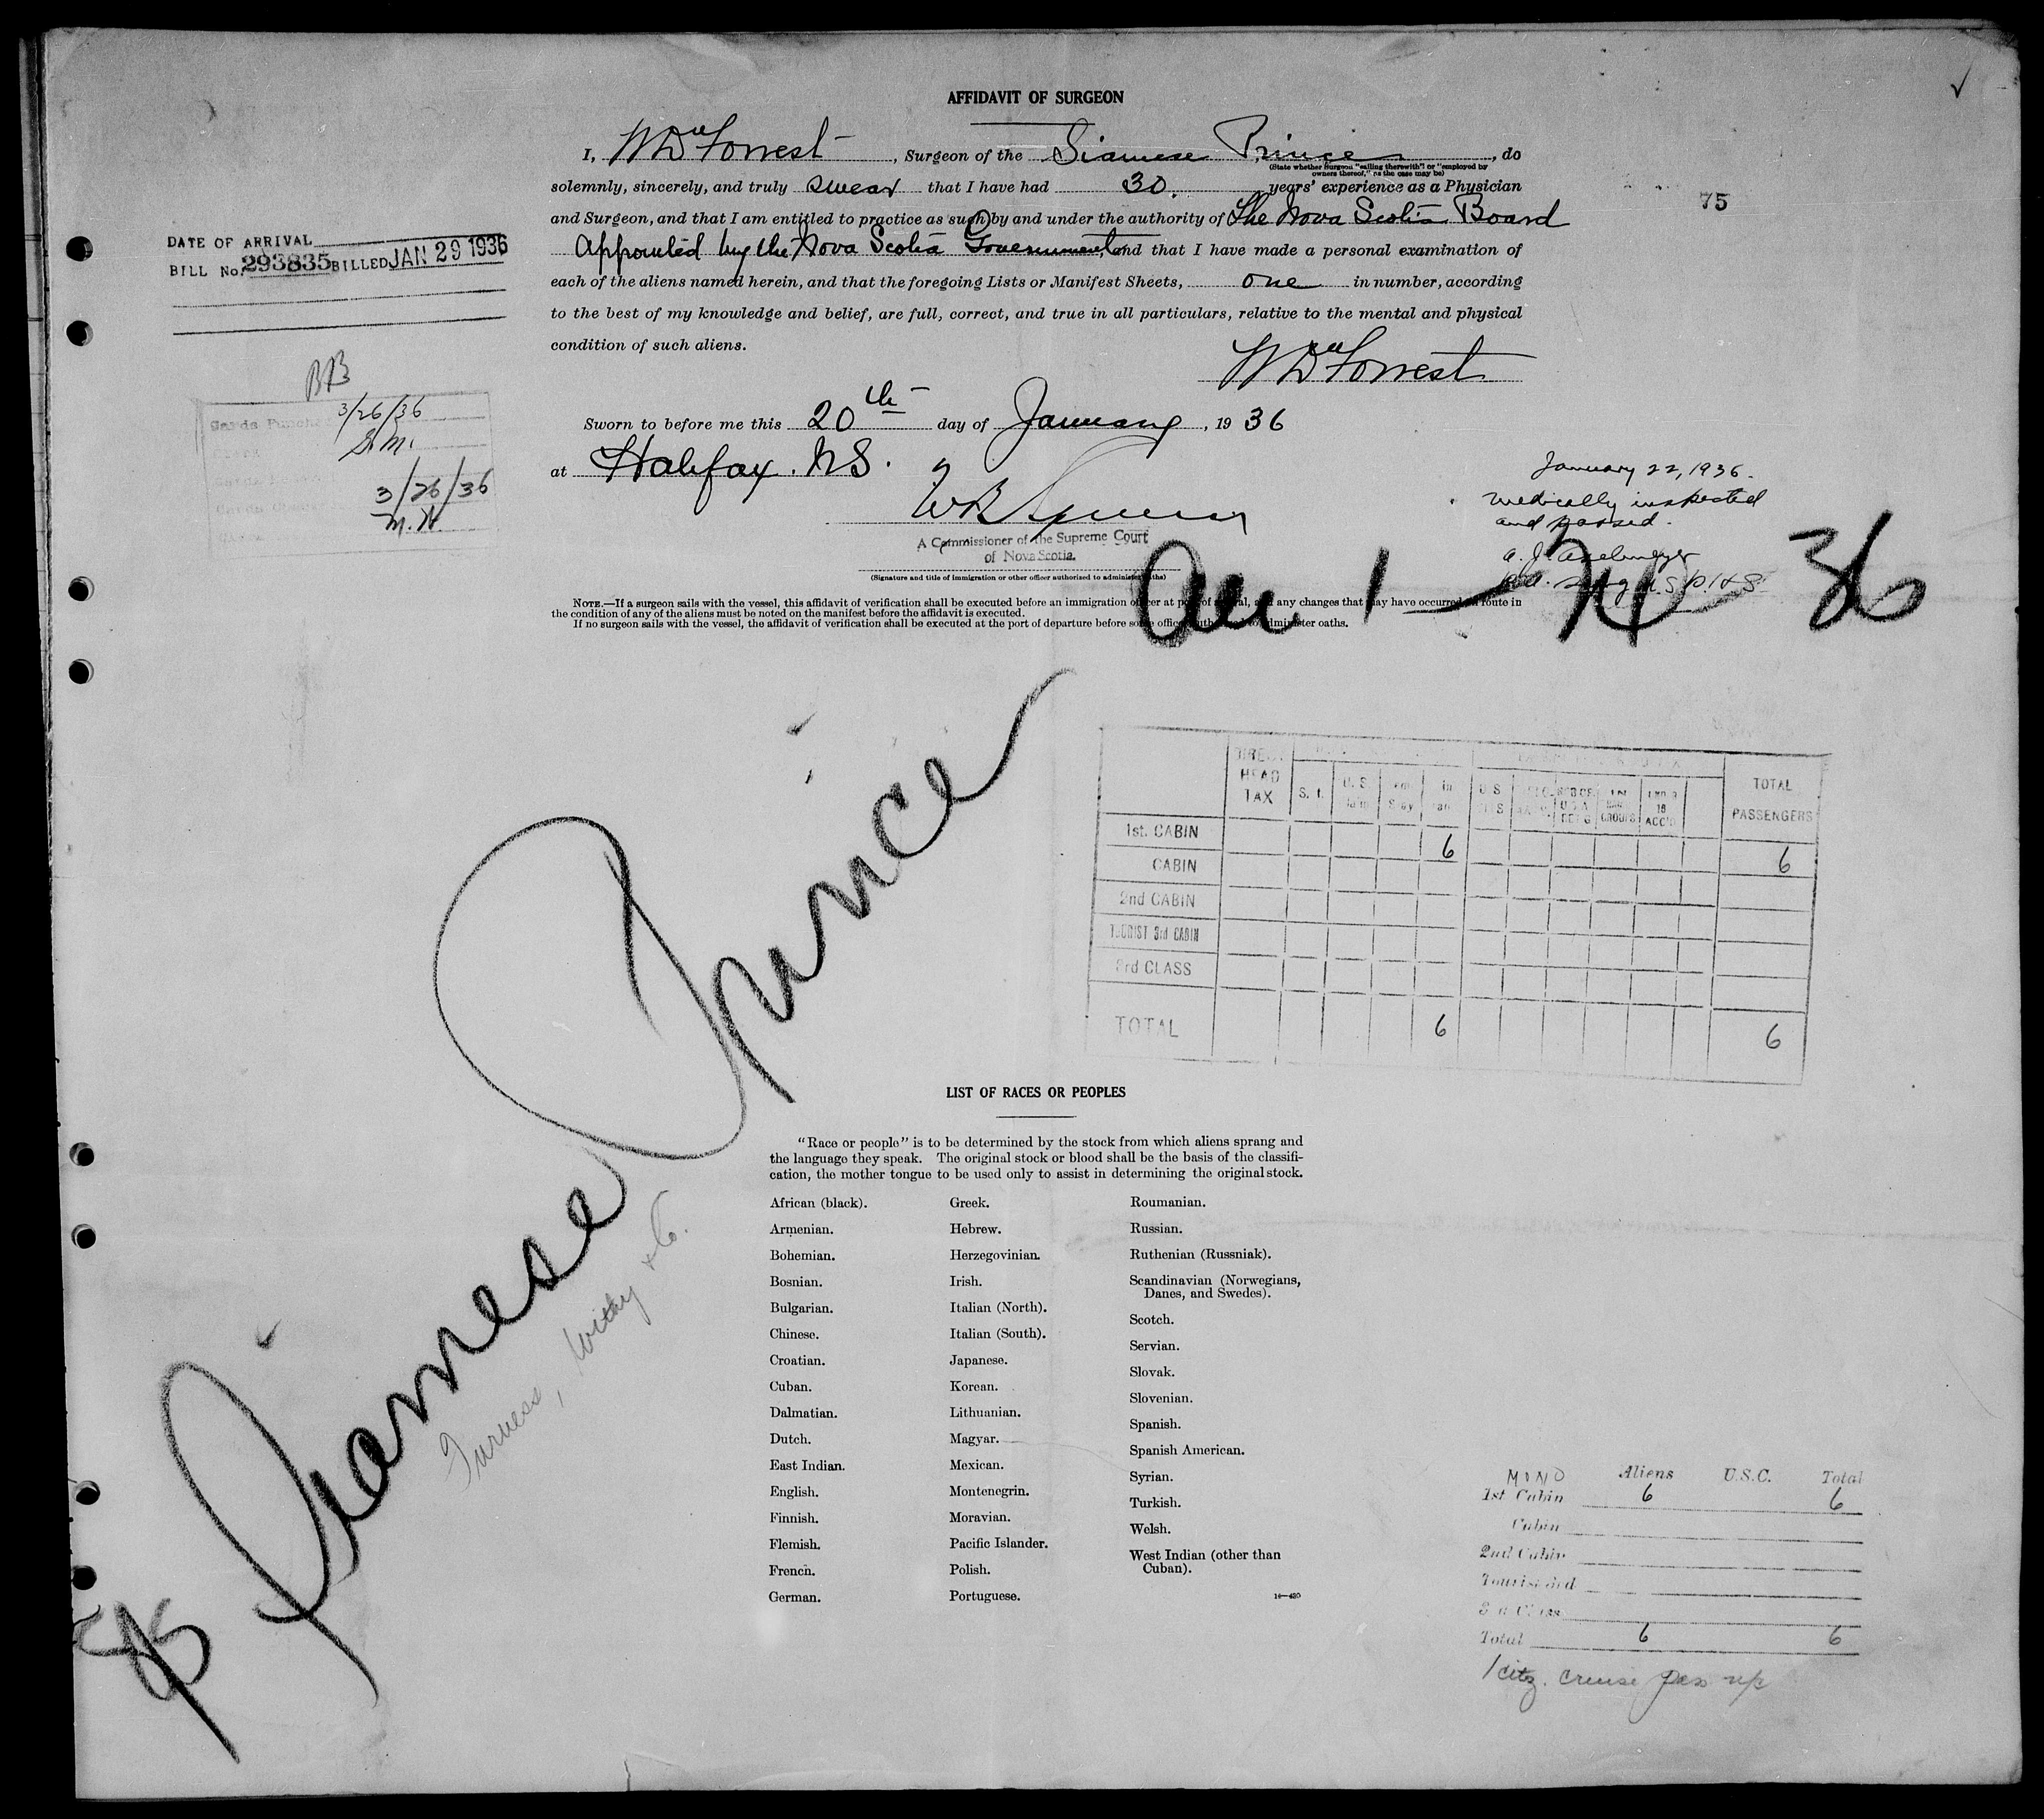 AFFIDAVIT OF SURGEON
I, W D Forrest, Surgeon of the Siamese Prince, do
(State whether Surgeon "sailing therewith" or "employed by
owners thereof," as the case may be)
solemnly, sincerely, and truly swear that I have had 30 years' experience as a Physician
75
and Surgeon, and that I am entitled to practice as such by and under the authority of The Nova Scotia Board
Appointed by the Nova Scotia Government, and that I have made a personal examination of
each of the aliens named herein, and that the foregoing Lists or Manifest Sheets, one in number, according
to the best of my knowledge and belief, are full, correct, and true in all particulars, relative to the mental and physical
condition of such aliens.
W D Forrest
DATE OF ARRIVAL
BILL No. 293835 BILLED JAN 29 1936
BB
3/26/36
S.M.
3/26/36
M.H.
Sworn to before me this 20th day of January, 1936
at Halifax. N.S.
A Commissioner of the Supreme Court
of Nova Scotia.
(Signature and title of immigration or other officer authorized to administer oaths)
January 22, 1936.
Medically inspected
and passed.
1 36
NOTE.—If a surgeon sails with the vessel, this affidavit of verification shall be executed before an immigration officer at port of arrival, and any changes that may have occurred en route in
the condition of any of the aliens must be noted on the manifest before the affidavit is executed.
If no surgeon sails with the vessel, the affidavit of verification shall be executed at the port of departure before some officer authorized to administer oaths.
Siamese Prince
Furness, Withy & Co.
DIRECT HEAD TAX
S. I.
U. S.
in
U S
18 ACC'D
TOTAL PASSENGERS
1st. CABIN 6 6
CABIN
2nd CABIN
TOURIST 3rd CABIN
3rd CLASS
TOTAL 6 6
LIST OF RACES OR PEOPLES
"Race or people" is to be determined by the stock from which aliens sprang and
the language they speak. The original stock or blood shall be the basis of the classifi-
cation, the mother tongue to be used only to assist in determining the original stock.
African (black).
Armenian.
Bohemian.
Bosnian.
Bulgarian.
Chinese.
Croatian.
Cuban.
Dalmatian.
Dutch.
East Indian.
English.
Finnish.
Flemish.
French.
German.
Greek.
Hebrew.
Herzegovinian.
Irish.
Italian (North).
Italian (South).
Japanese.
Korean.
Lithuanian.
Magyar.
Mexican.
Montenegrin.
Moravian.
Pacific Islander.
Polish.
Portuguese.
Roumanian.
Russian.
Ruthenian (Russniak).
Scandinavian (Norwegians,
Danes, and Swedes).
Scotch.
Servian.
Slovak.
Slovenian.
Spanish.
Spanish American.
Syrian.
Turkish.
Welsh.
West Indian (other than
Cuban).
Aliens U.S.C. Total
1st Cabin 6 6
Cabin
2nd Cabin
Tourist 3rd
Total 6 6
1 citz. cruise pas